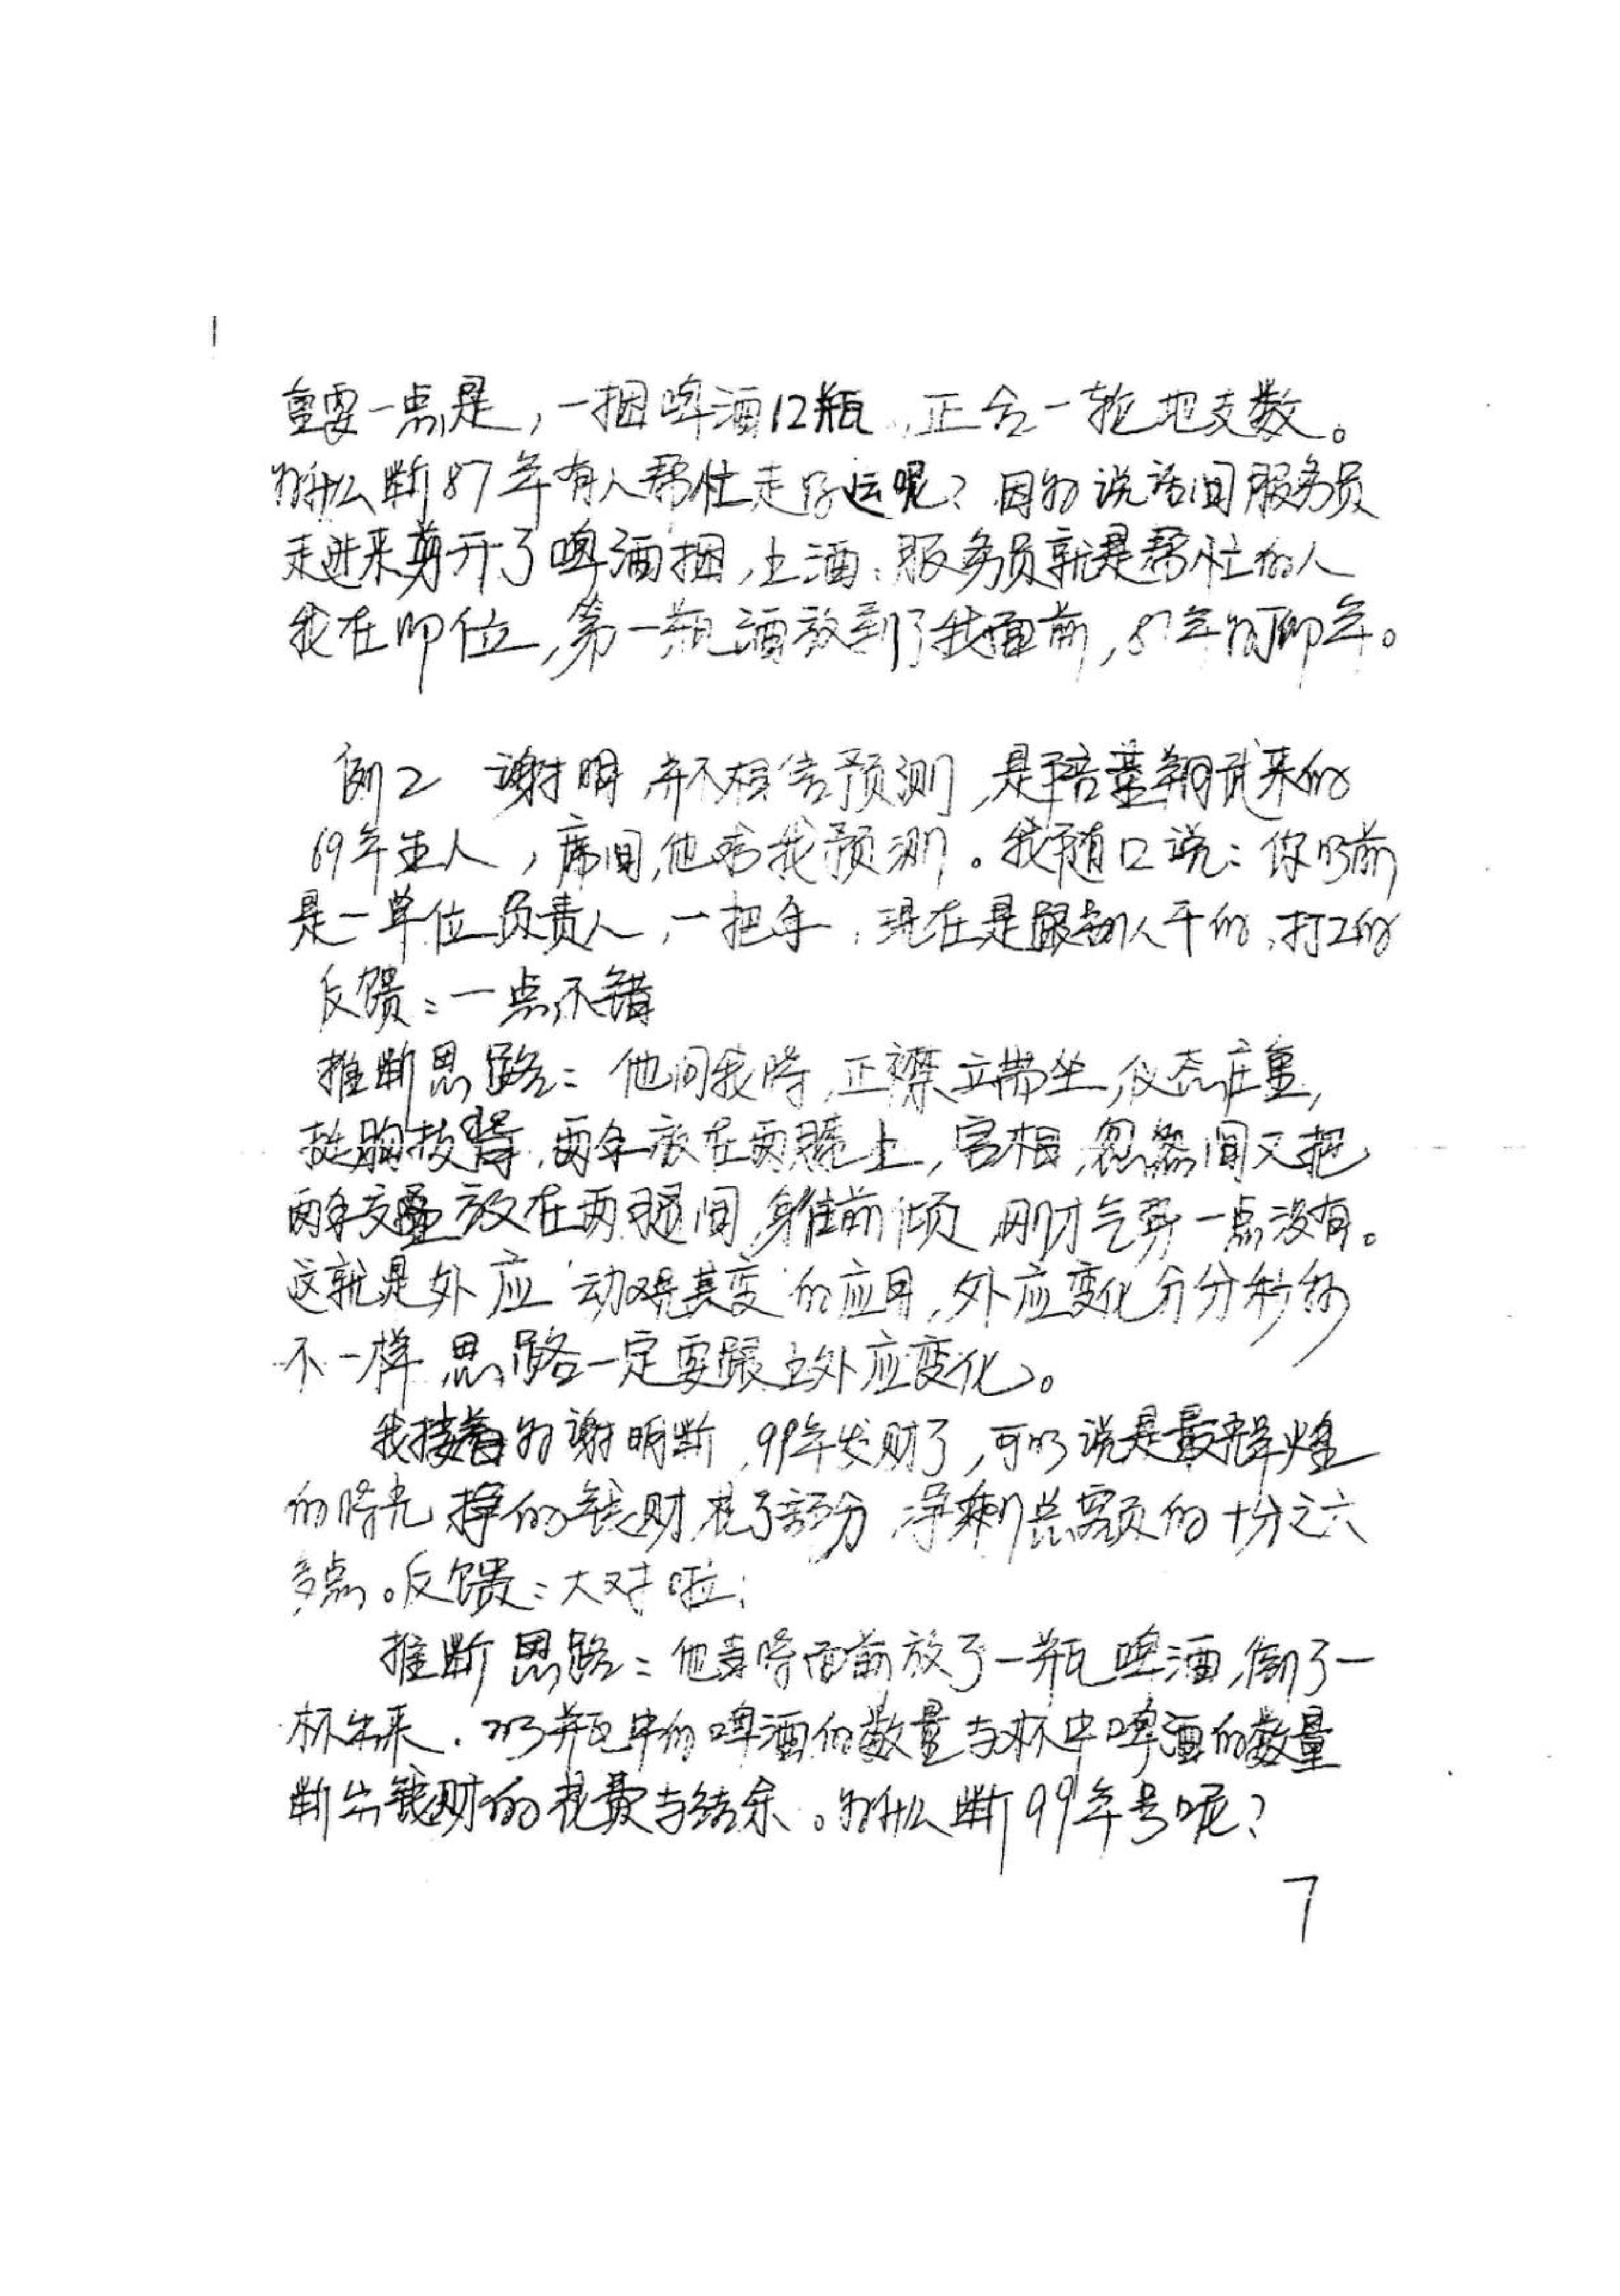 重要一点是,一捆啤酒12瓶,正合一轮地支数。
为什么断87年有人帮忙走好运呢?因为说话间服务员
走进来剪开了啤酒捆,上酒,服务员就是帮忙的人
我在卯位,第一瓶酒放到了我面前,87年为丁卯年。
例2 谢明并不相信预测,是陪董翔武来的
69年生人,席间,他求我预测。我随口说:你以前
是一单位负责人,一把手,现在是跟别人干的,打工的
反馈:一点不错
推断思路:他问我时,正襟立端坐,仪态庄重,
挺胸拔背,两手放在两腿上,官相,忽然间又把
两手交叠放在两腿间,身往前倾,刚才气势一点没有。
这就是外应"动观其变"的应用,外应变化分分秒秒
不一样 思路一定要跟上外应变化。
我接着为谢明断,99年发财了,可以说是最辉煌
的时光 挣的钱财花了部分 净剩总额的十分之六
多点。反馈:太对啦;
推断思路:他当时面前放了一瓶啤酒,倒了一
杯出来.以瓶中的啤酒的数量与杯中啤酒的数量
断出钱财的花费与结余。为什么断99年号呢?
7